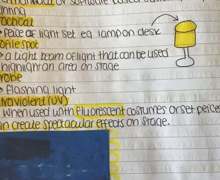 or software based
Practical
• piece of light set eg. lamp on desk
Profile spot
• a tight beam of light that can be used
highlight an area on stage
Strobe
• flashing light
Ultraviolet (UV)
• when used with fluorescent costumes or set pieces
can create spectacular effects on stage.